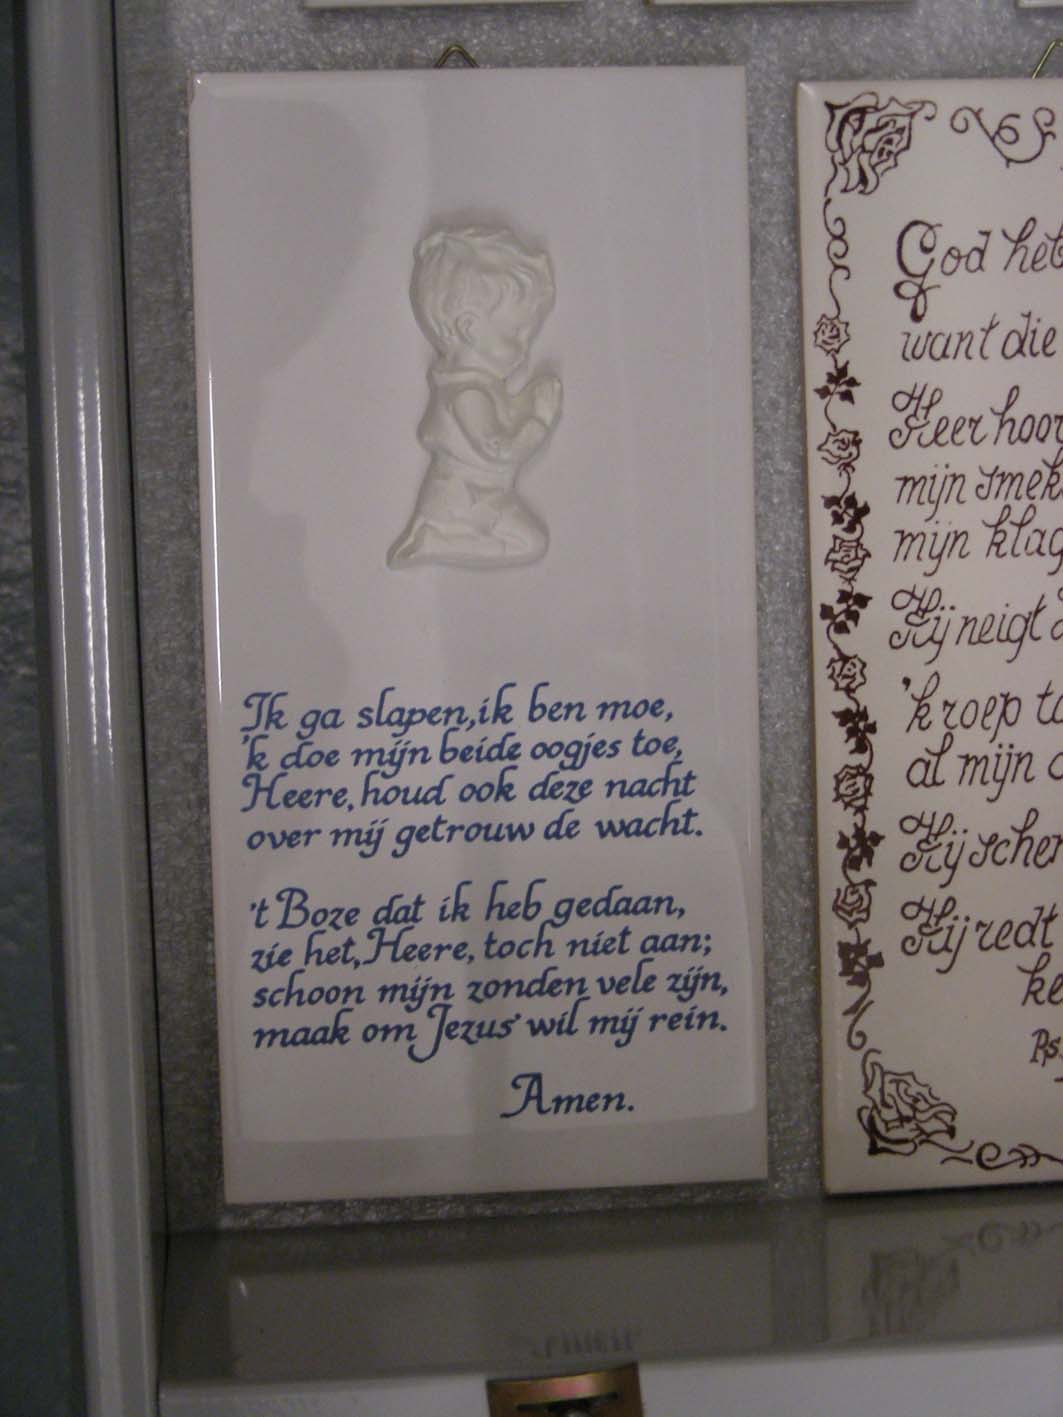 Ik ga slapen, ik ben moe,
'k doe mijn beide oogjes toe,
Heere, houd ook deze nacht
over mij getrouw de wacht.
't Boze dat ik heb gedaan,
zie het, Heere, toch niet aan;
schoon mijn zonden vele zijn,
maak om Jezus' wil mij rein.
Amen.
God
want die
Heer
mijn
mijn
Hij neigt
'k roep
al mijn
Hij
Hij redt
Ps.